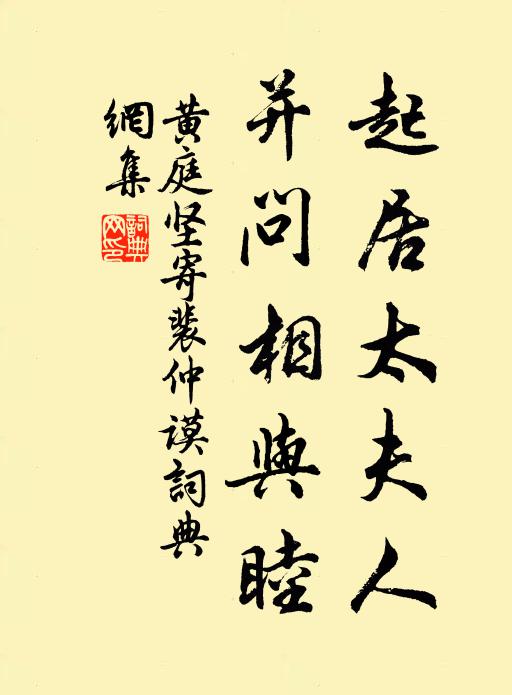 起居太夫人
并问相與睦
黄庭坚寄裴仲谟詞典
網集
詞典網印